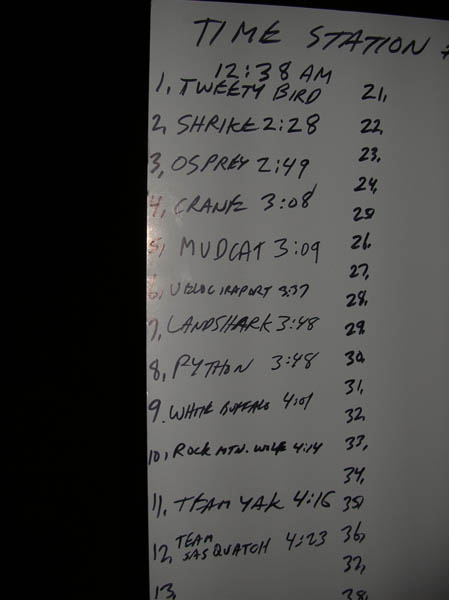 TIME STATION #
12:38 AM
1, TWEETY BIRD
2, SHRIKE 2:28
3, OSPREY 2:49
4, CRANE 3:08
5, MUDCAT 3:09
6, VELOCIRAPORT 3:37
7, LANDSHARK 3:48
8, PYTHON 3:48
9. WHITE BUFFALO 4:01
10, ROCK MTN. WOLF 4:14
11, TEAM YAK 4:16
12, TEAM SASQUATCH 4:23
13,
21,
22,
23,
24,
25,
26,
27,
28,
29,
30,
31,
32,
33,
34,
35,
36,
37,
38,